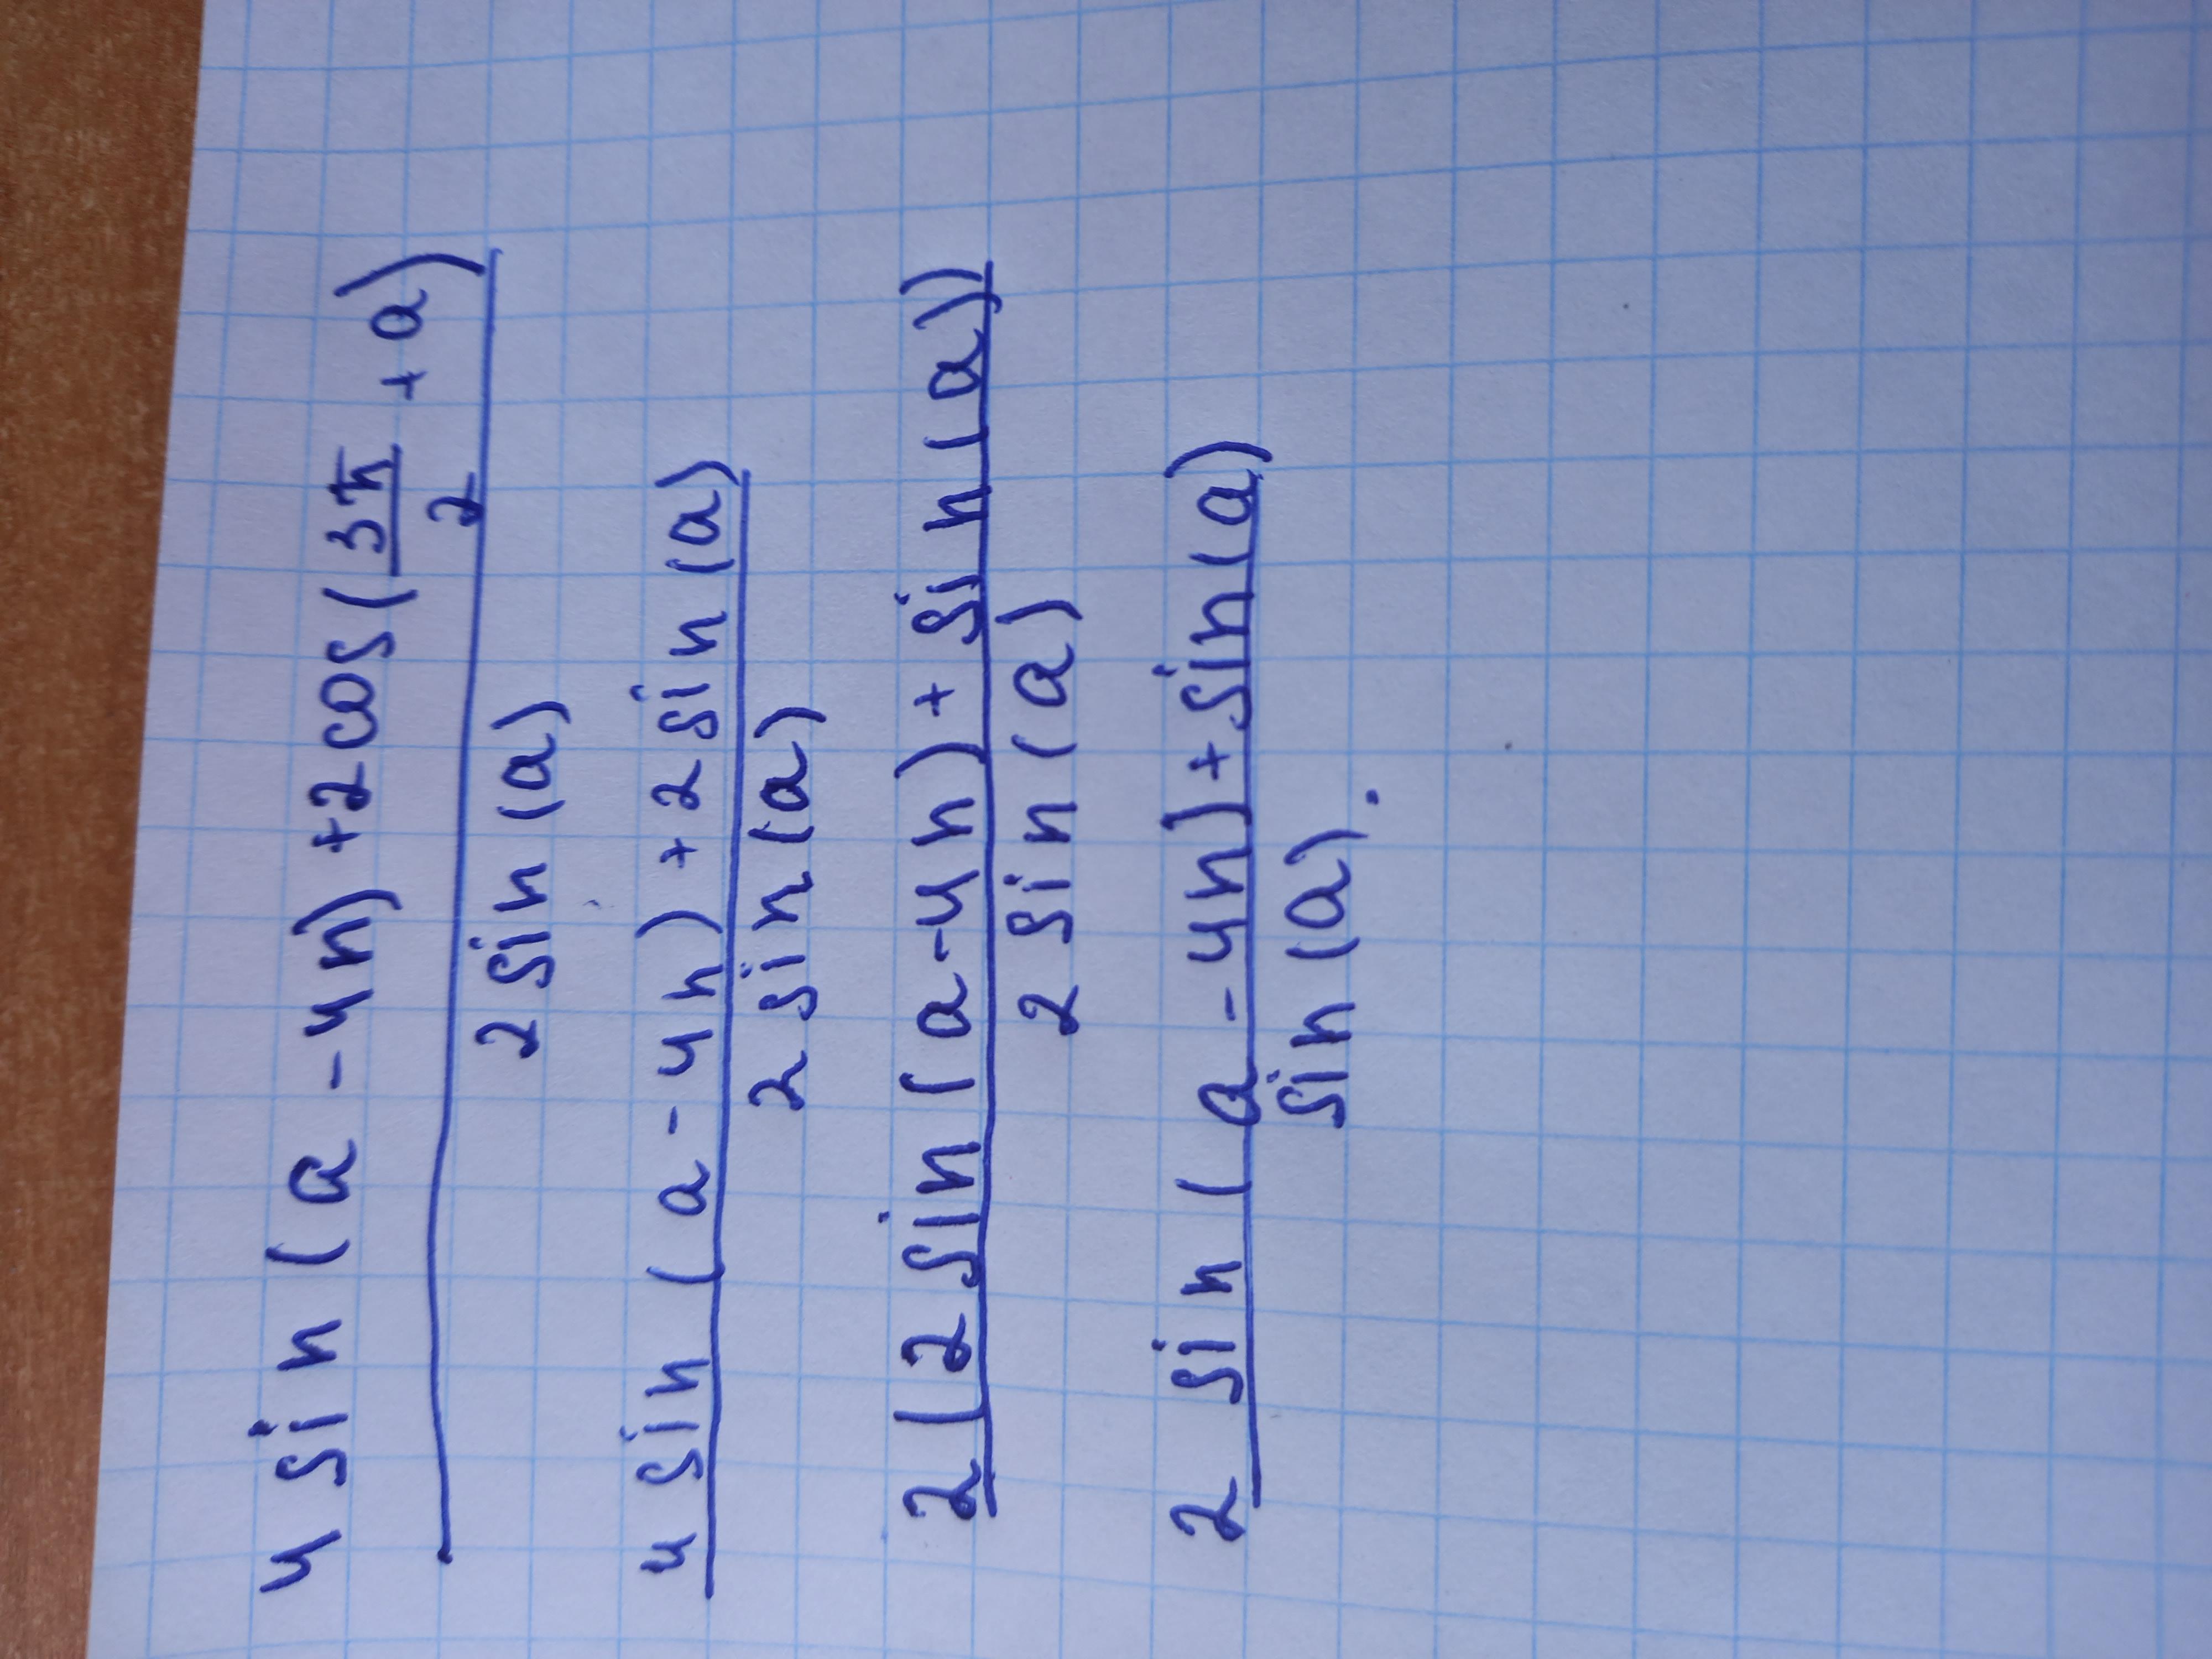 4 sin (a - 4n) + 2 cos (3π/2 + a)
2 sin (a)
4 sin (a - 4n) + 2 sin (a)
2 sin (a)
2 (2 sin (a - 4n) + sin (a))
2 sin (a)
2 sin (a - 4n) + sin (a)
sin (a).